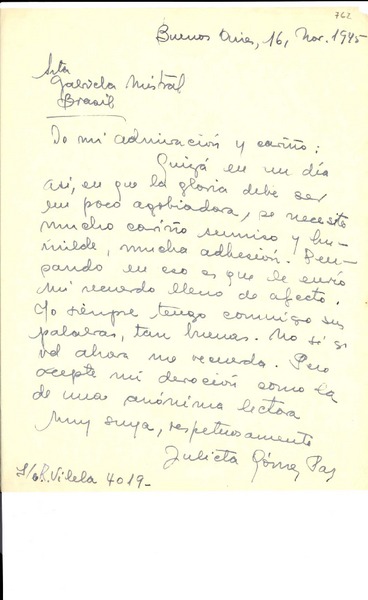 762
Buenos Aires, 16, Nov. 1945
Srta
Gabriela Mistral
Brasil
De mi admiración y cariño:
Quizá en un día
así, en que la gloria debe ser
un poco agobiadora, se necesite
mucho cariño sumiso y hu-
milde, mucha adhesión. Pen-
sando en eso es que le envío
mi recuerdo lleno de afecto.
Yo siempre tengo conmigo sus
palabras, tan buenas. No sé si
vd ahora me recuerda. Pero
acepte mi devoción como la
de una anónima lectora
Muy suya, respetuosamente
Julieta Gómez Paz
Vilela 4019-